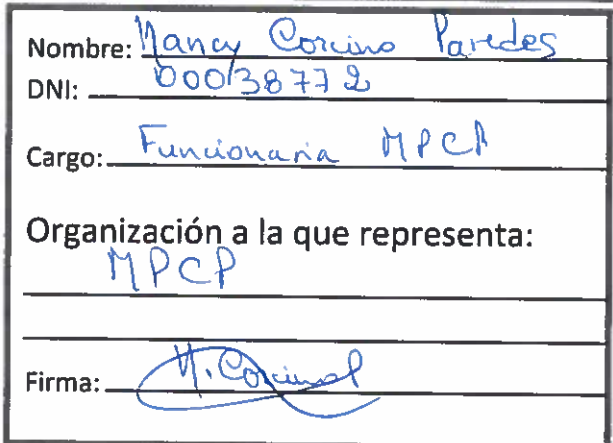 Nombre: Nancy Corcino Paredes
DNI: 00038772
Cargo: Funcionaria MPCP
Organización a la que representa:
MPCP
Firma: N. Corcino P